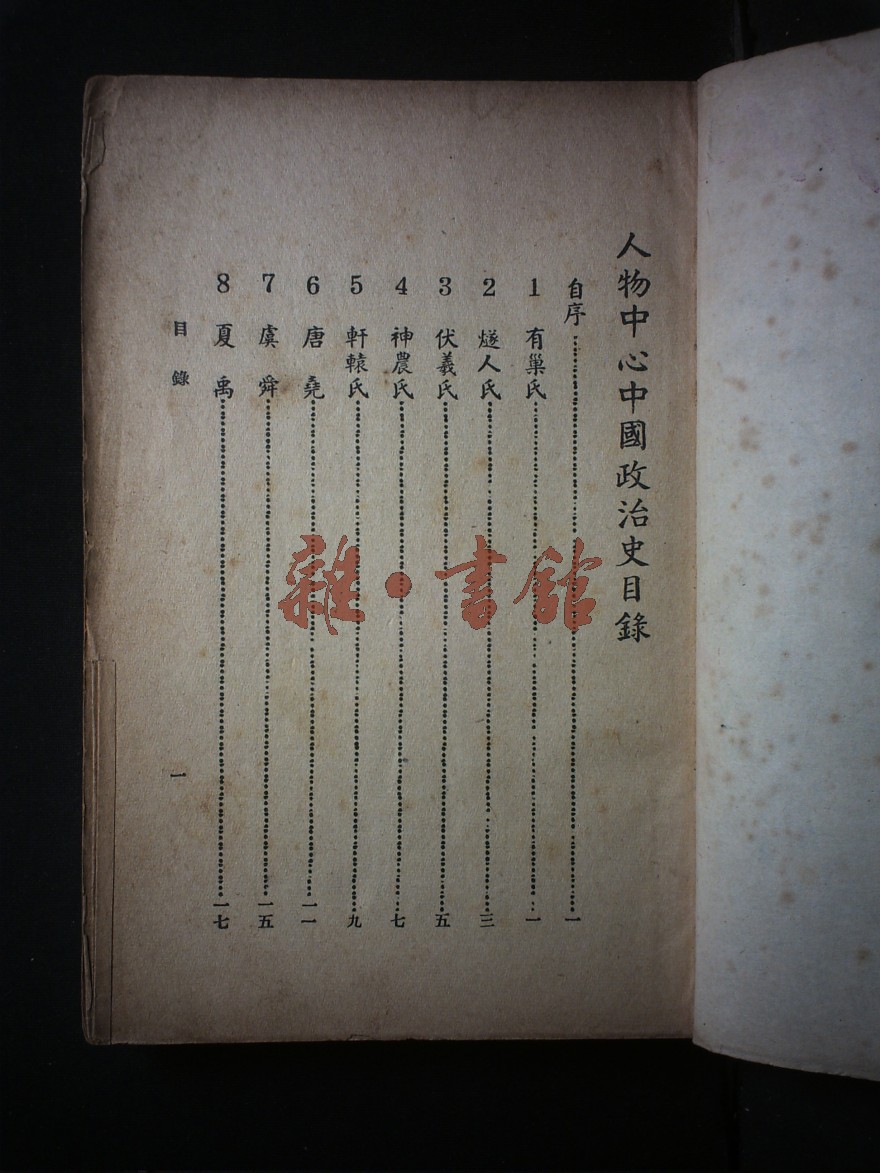 人物中心中國政治史目錄
自序………一
1 有巢氏………一
2 燧人氏………三
3 伏羲氏………五
4 神農氏………七
5 軒轅氏………九
6 唐堯………一一
7 虞舜………一五
8 夏禹………一七
目錄 一
雜·書館